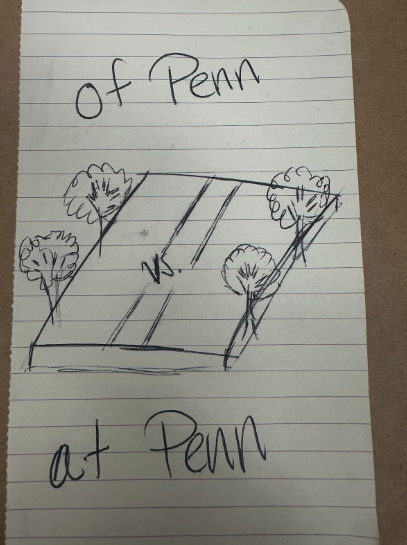 Of Penn
vs.
at Penn